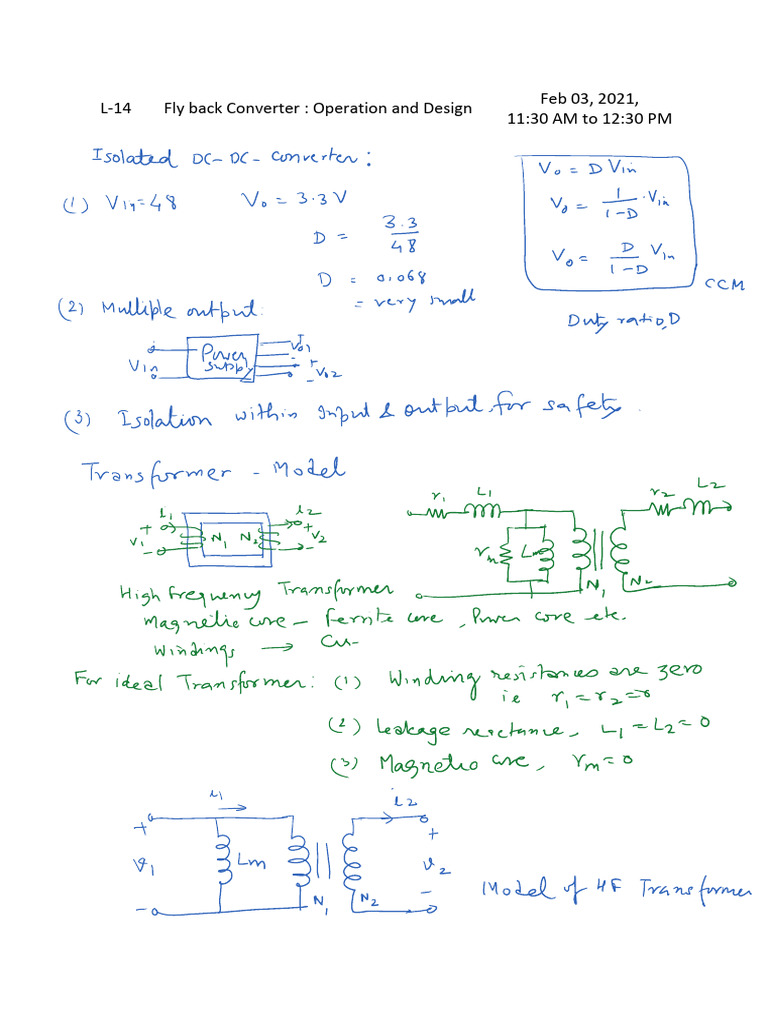 L-14 Fly back Converter : Operation and Design
Feb 03, 2021,
11:30 AM to 12:30 PM
Isolated DC-DC-converter:
(1) Vin=48 Vo = 3.3V
D = 3.3/48
D = 0.068
= very small
Vo = D Vin
Vo = 1/(1-D) · Vin
Vo = D/(1-D) Vin
CCM
Duty ratio, D
(2) Multiple output:
Vin
Power
supply
+ Vo1 -
+ Vo2 -
(3) Isolation within input & output, for safety.
Transformer - Model
i1 i2
+ V1 - N1 N2 + V2 -
r1 L1 r2 L2
rm Lm
N1 N2
High Frequency Transformer
Magnetic core - Ferrite core, Power core etc.
Windings → Cu
For ideal Transformer: (1) Winding resistances are zero
ie r1=r2=0
(2) Leakage reactance, L1=L2=0
(3) Magnetic core, rm=0
i1 i2
+ v1 - Lm + v2 -
N1 N2
Model of HF Transformer